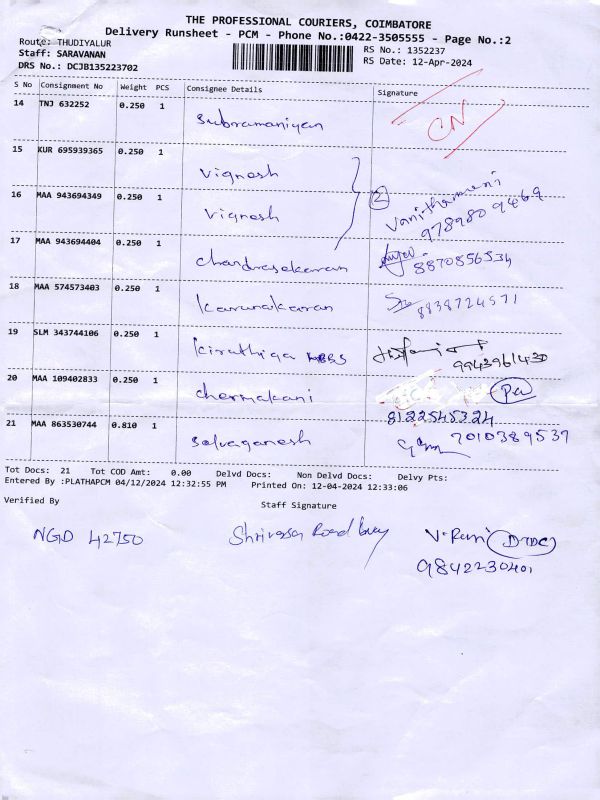 THE PROFESSIONAL COURIERS, COIMBATORE
Delivery Runsheet - PCM - Phone No.:0422-3505555 - Page No.:2
Route: THUDIYALUR
RS No.: 1352237
Staff: SARAVANAN
RS Date: 12-Apr-2024
DRS No.: DCJB135223702
S No Consignment No Weight PCS Consignee Details Signature
14 TNJ 632252 0.250 1 Subramaniyan CN
15 KUR 695939365 0.250 1 Vignesh
16 MAA 943694349 0.250 1 Vignesh 2 9789809469
17 MAA 943694404 0.250 1 chandrasekaran 8870856534
18 MAA 574573403 0.250 1 karunakaran 8838724571
19 SLM 343744106 0.250 1 kiruthiga MBBS 9943961430
20 MAA 109402833 0.250 1 chermakani 8122545324
21 MAA 863530744 0.810 1 selvaganesh 7010389537
Tot Docs: 21 Tot COD Amt: 0.00 Delvd Docs: Non Delvd Docs: Delvy Pts:
Entered By :PLATHAPCM 04/12/2024 12:32:55 PM Printed On: 12-04-2024 12:33:06
Verified By
Staff Signature
NGD 42750 Road V. DTDC
9842230401